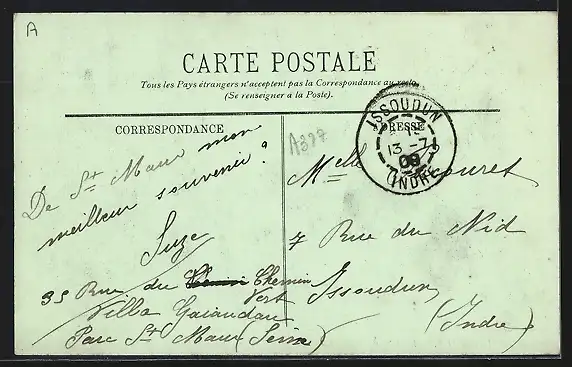 A
CARTE POSTALE
Tous les Pays étrangers n'acceptent pas la Correspondance au recto
(Se renseigner à la Poste).
CORRESPONDANCE
De St Maur mon
meilleur souvenir
Suze
35 Rue du Chemin
Vert
Villa
Parc St Maur (Seine)
A327
ADRESSE
ISSOUDUN
13 -7
09
INDRE
Melle
7 Rue du Nid
Issoudun
(Indre)